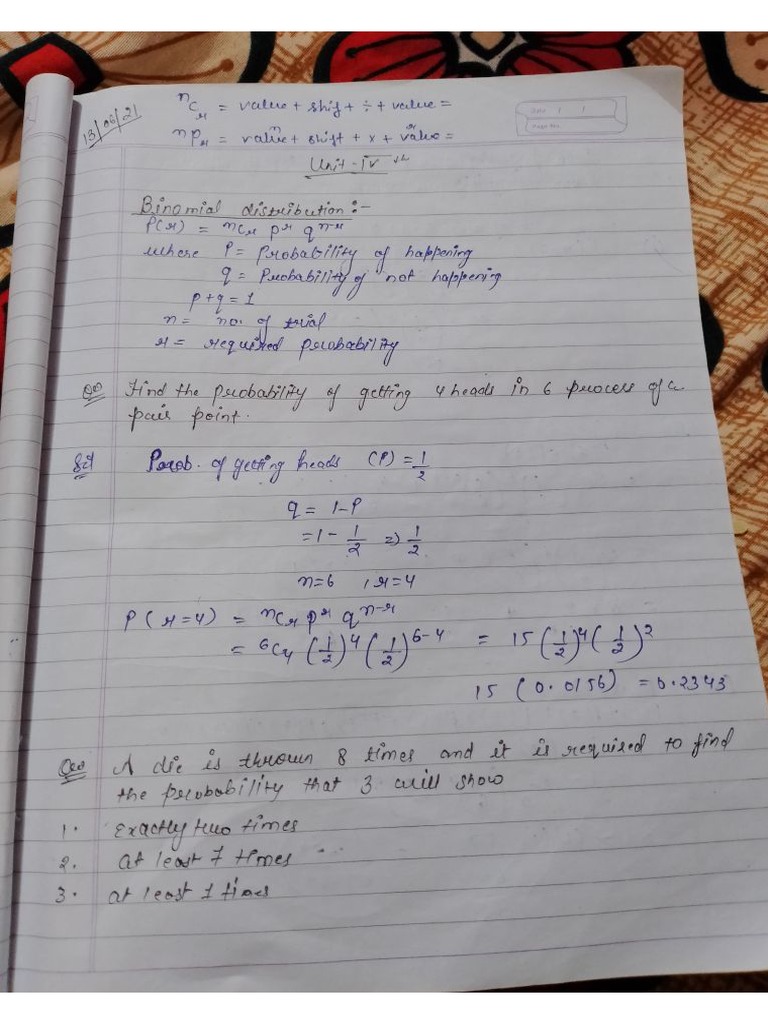 13/06/21
nCr = value + shif + ÷ + value =
nPr = value + shift + x + value =
Unit-IV
Binomial distribution:-
P(r) = nCr p^r q^n-r
where P = probability of happening
q = Probability of not happening
p+q=1
n = no. of trial
r = required probability
Que Find the probability of getting 4 heads in 6 process of a
pair point.
Sol Prob. of getting heads (P) = 1/2
q = 1-P
= 1 - 1/2 => 1/2
n=6 , r=4
P(r=4) = nCr p^r q^n-r
= 6C4 (1/2)^4 (1/2)^6-4 = 15 (1/2)^4 (1/2)^2
15 (0.0156) = 0.2343
Que A die is thrown 8 times and it is required to find
the probability that 3 will show
1. Exactly two times
2. at least 7 times
3. at least 1 times